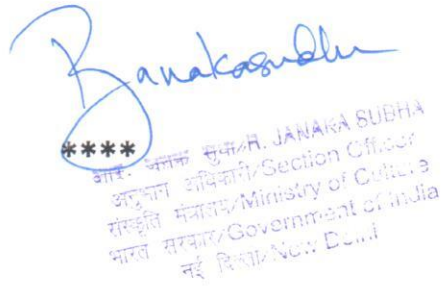 Rjanakasudha
****
आर. जनक सुधा/R. JANAKA SUDHA
अनुभाग अधिकारी/Section Officer
संस्कृति मंत्रालय/Ministry of Culture
भारत सरकार/Government of India
नई दिल्ली/New Delhi